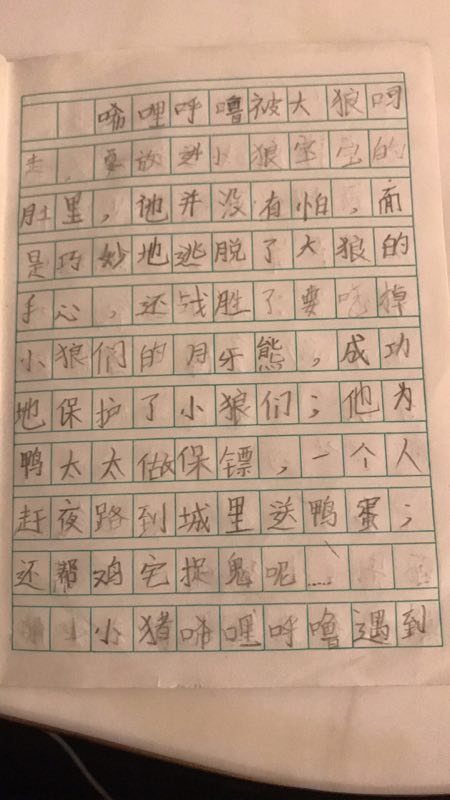 唏哩呼噜被大狼叼
走，要放进小狼宝宝的
肚里，他并没有怕，而
是巧妙地逃脱了大狼的
手心，还战胜了要吃掉
小狼们的月牙熊，成功
地保护了小狼们；他为
鸭太太做保镖，一个人
赶夜路到城里送鸭蛋；
还帮鸡宅捉鬼呢……
小猪唏哩呼噜遇到